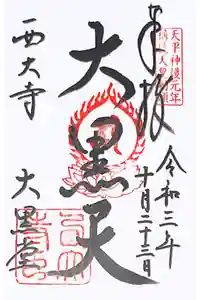 奉拝
令和三年
十月二十三日
大黒天
西大寺
大黒堂
天平神護元年